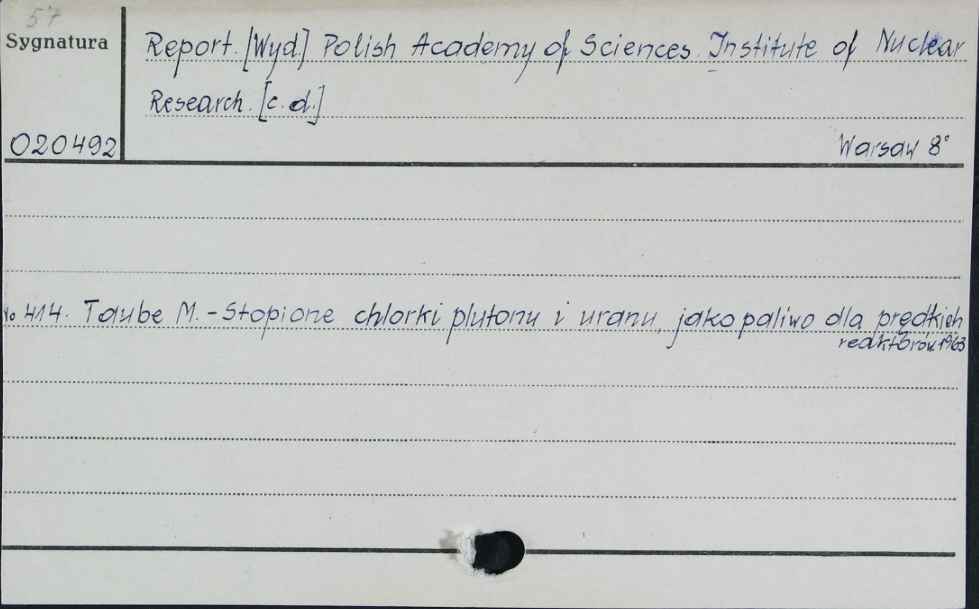 57
Sygnatura
Report. [Wyd.] Polish Academy of Sciences. Institute of Nuclear
Research. [c.d.]
020492
Warsaw 8°
No 414. Taube M. - Stopione chlorki plutonu i uranu, jako paliwo dla prędkich
reaktorów 1963